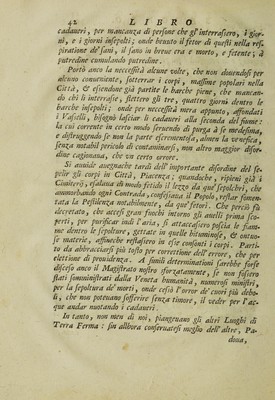 42 LIBRO
cadaueri, per mancanza di persone che gl'interrassero, i gior-
ni, e i giorni insepolti; onde beuuto il fetor di questi nella res-
piratione de' sani, il sano in breue era e morto, e fetente; à
putredine cumulando putredine.
Portò anco la necessità alcune volte, che non douendosi per
alcuno conueniente, sotterrar i corpi, massime popolari nella
Città, & essendone già partite le barche piene, che mancan-
do chi li interrasse, stettero gli tre, quattro giorni dentro le
barche insepolti; onde per necessità mera appunto, affondati
i Vasselli, bisognò lasciar li cadaueri alla seconda del fiume:
la cui corrente in certo modo seruendo di purga à se medesima,
e distruggendo se non la parte esrementosa, almen la venefica,
senza notabil pericolo di contaminarsi, non altro maggior disor-
dine cagionaua, che vn certo orrore.
Si auuide auegnache tardi dell'importante disordine del se-
pelir gli corpi in Città, Piacenza; quandoche, ripieni già i
Cimiterij, esalaua di modo fetido il lezzo da que' sepolchri, che
ammorbando ogni Contrada, confessaua il Popolo, restar fomen-
tata la Pestilenza notabilmente, da que' fetori. Che perciò fù
decretato, che accesi gran fuochi intorno gli auelli prima sco-
perti, per purificar indi l'aria, si attaccassero poscia le fiam-
me dentro le sepolture, gettate in quelle bituminose, & ontuo-
se materie, affinche restassero in esse consonti i corpi. Parti-
to da abbracciarsi più tosto per correttione dell'errore, che per
elettione di prouidenza. A simili determinationi sarebbe forse
disceso anco il Magistrato nostro sforzatamente, se non fossero
stati somministrati dalla Veneta humanità, numerosi ministri,
per la sepoltura de' morti, onde cessò l'orror de' cuori più debo-
li, che non poteuano sofferire senza timore, il veder per l'ac-
que andar nuotando i cadaueri.
In tanto, non men di noi, piangeuano gli altri Luoghi di
Terra Ferma: sin allhora conseruatesi meglio dell'altre, Pa-
doua,